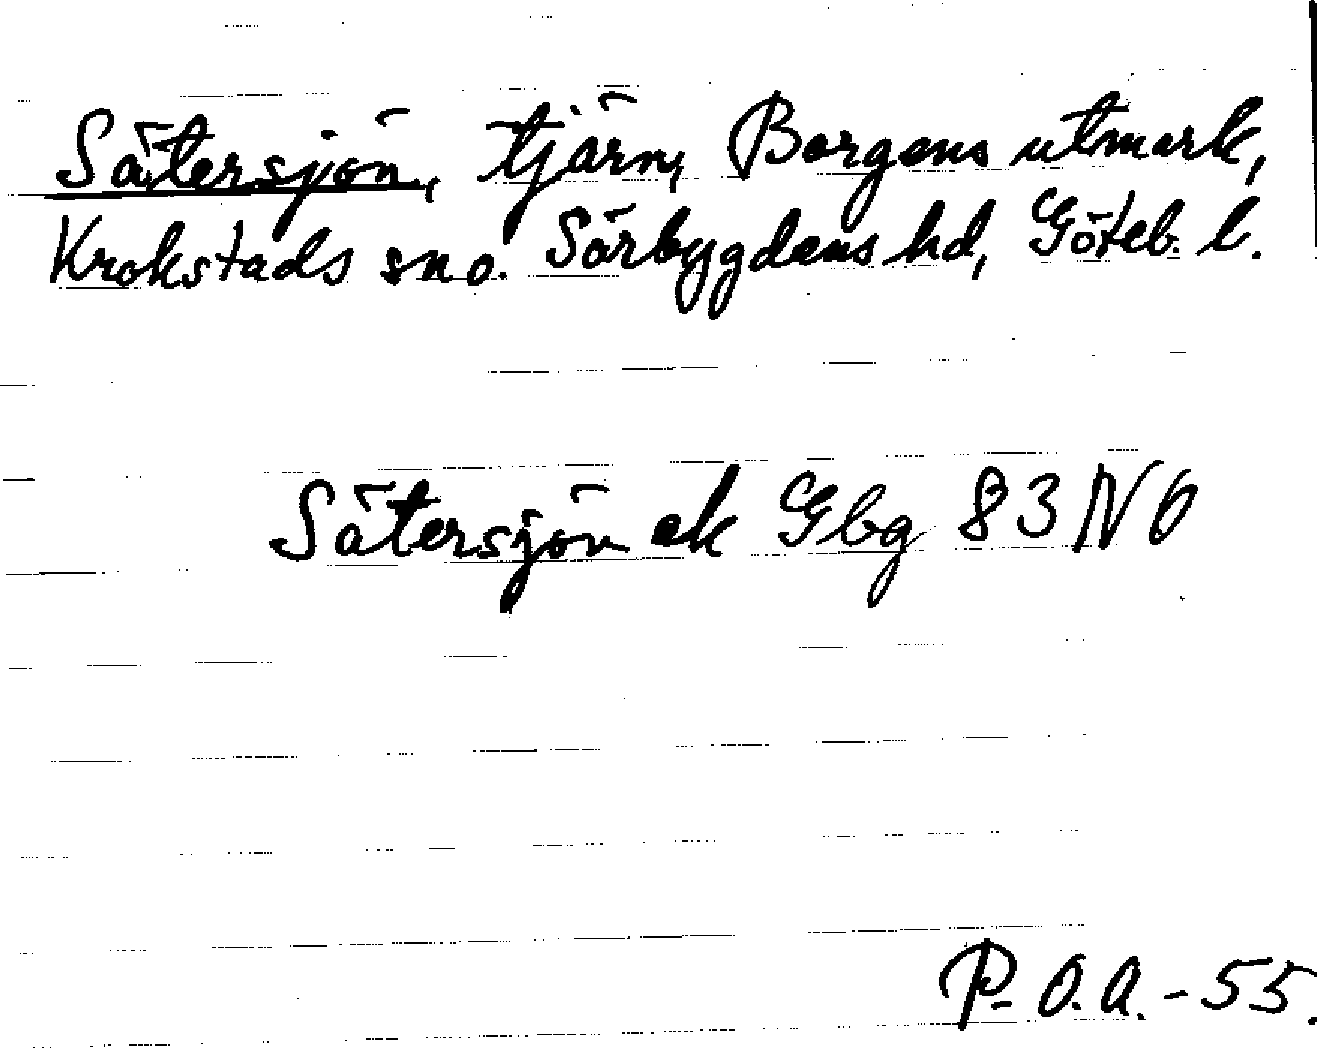 Sätersjön, tjärn, Borgens utmark,
Krokstads sn o. Sörbygdens hd, Göteb. l.
Sätersjön ek Gbg 83 NO
P-O.A.-55.